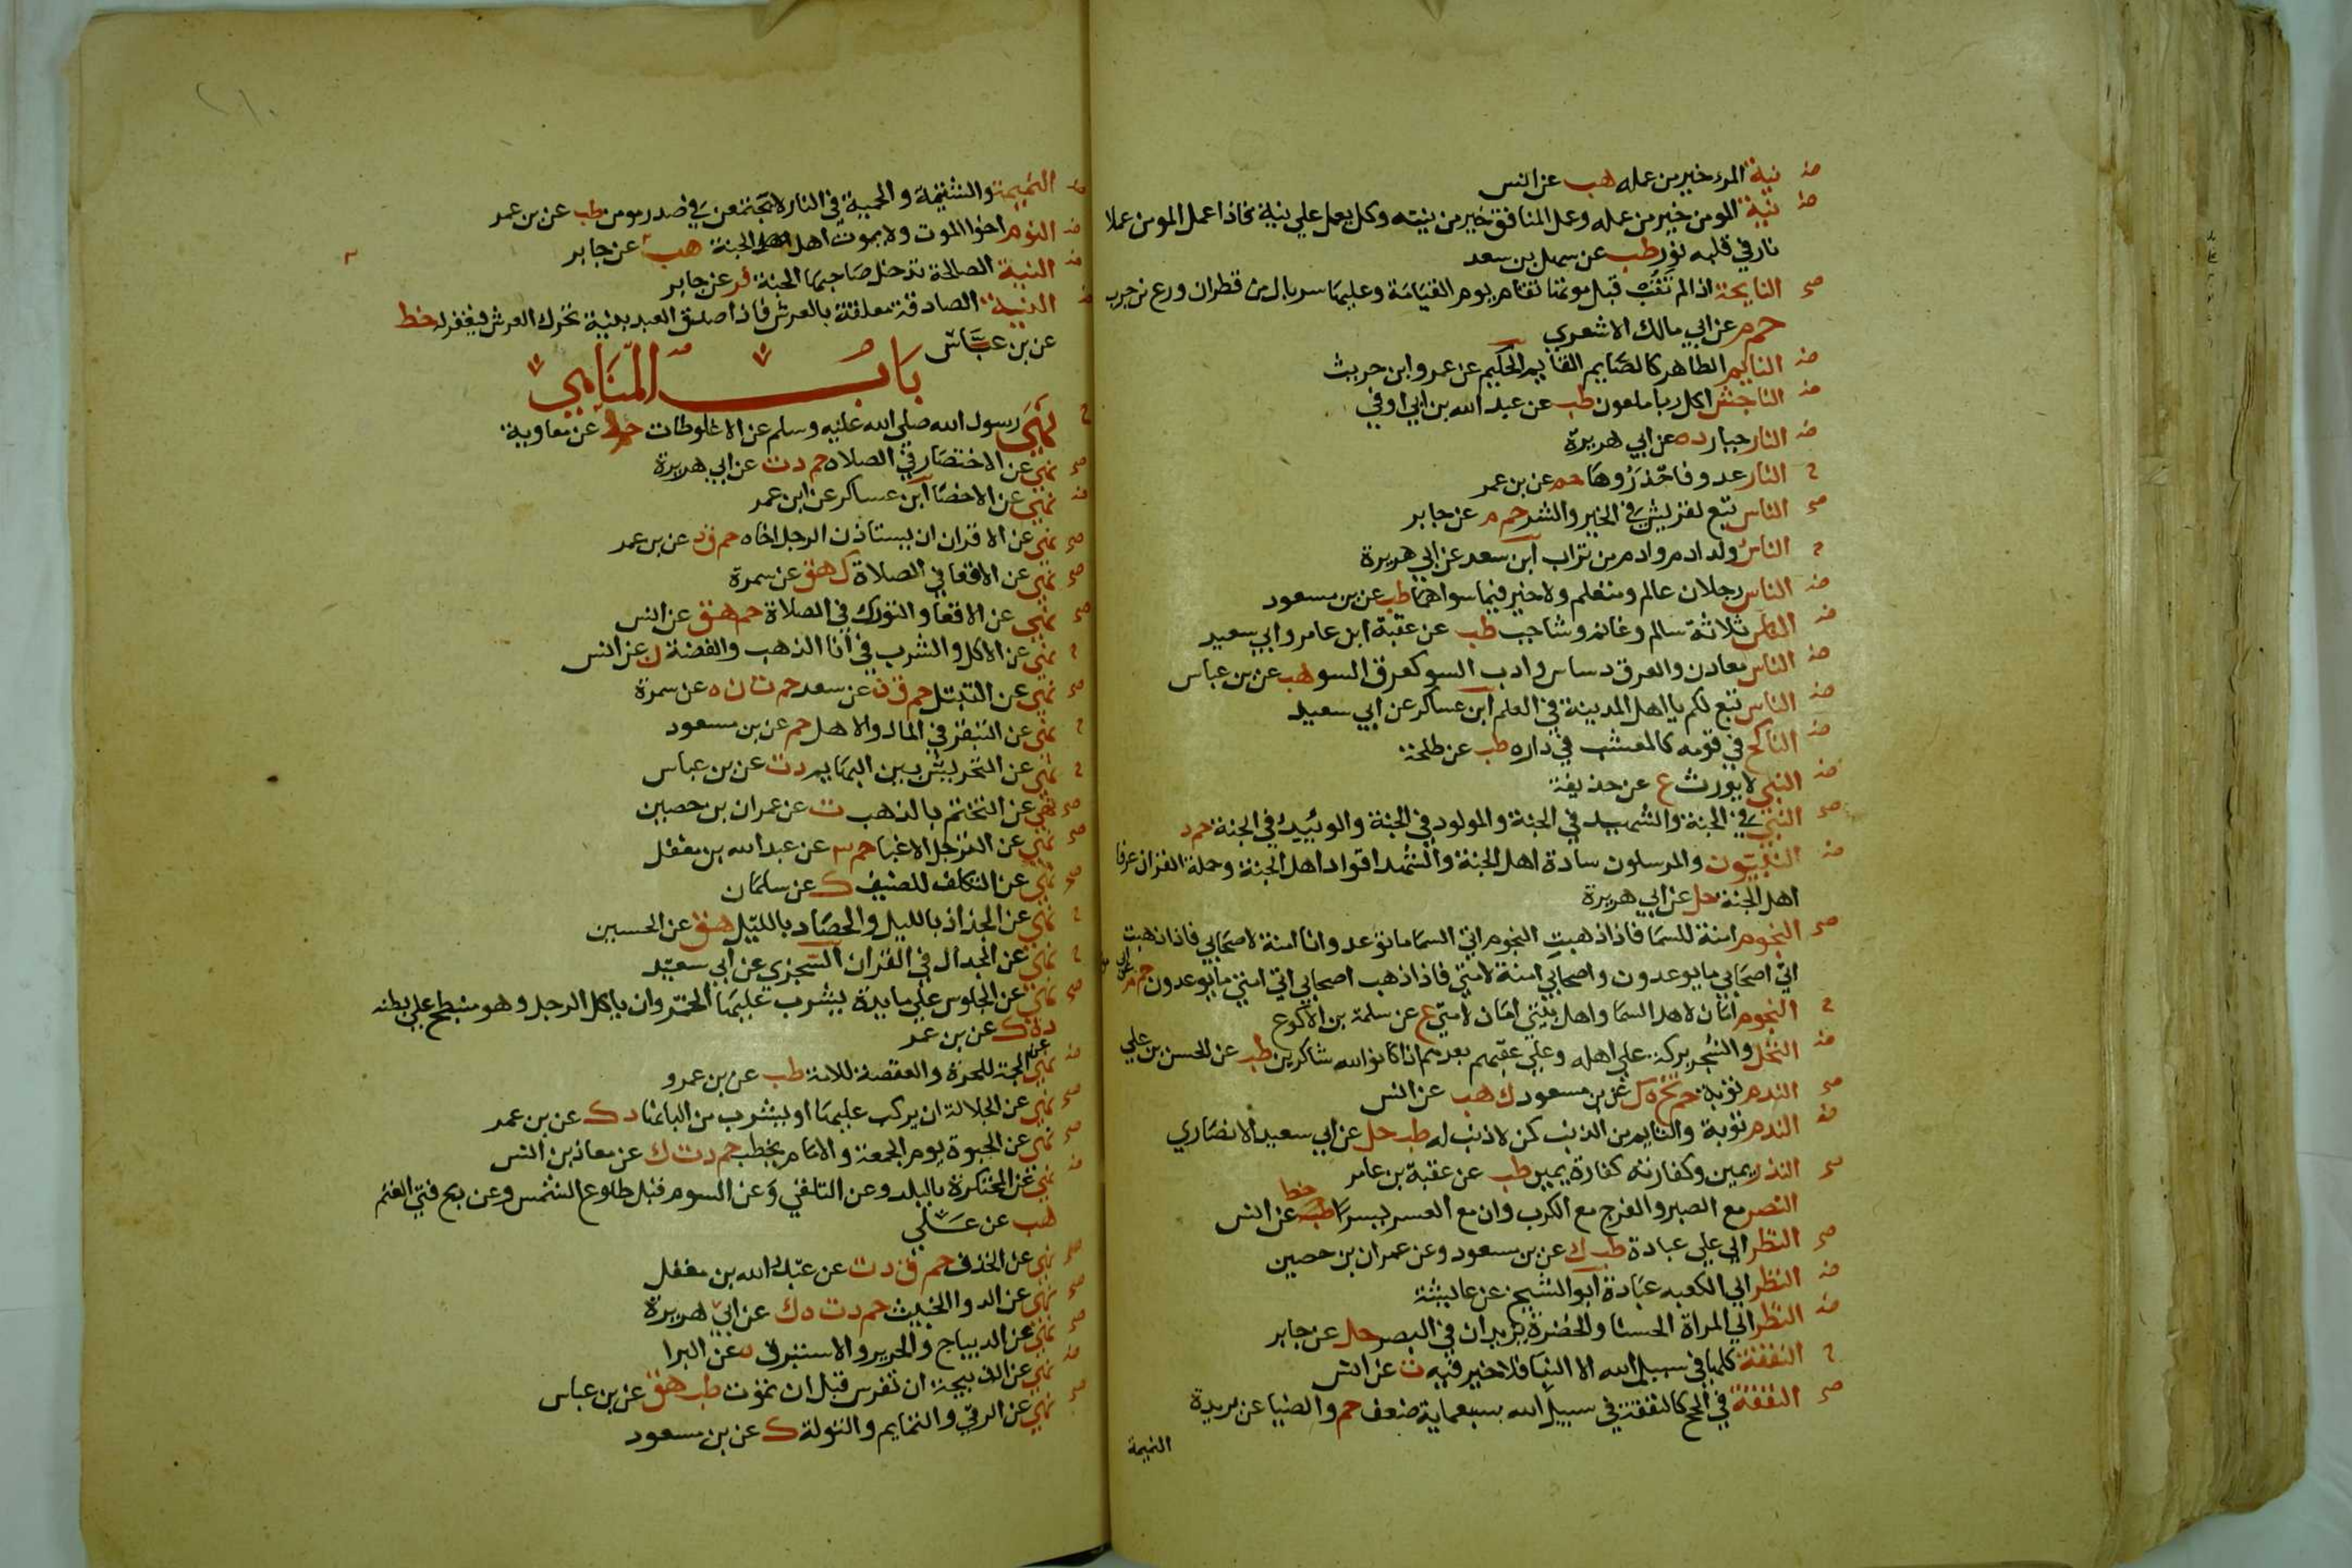 ضـ نية المرء خير من عمله هب عن انس
ضـ نية المومن خير من عمله وعمل المنافق خير من نيته وكل يعمل علي نية فاذا عمل المومن عملا
نار في قلبه نور طب عن سهل بن سعد
صح النايحة اذا لم تتب قبل موتها تقام يوم القيامة وعليها سربال من قطران ودرع من جرب
حم م عن ابي مالك الاشعري
ضـ النايم الطاهر كالصايم القايم الحكيم عن عمرو ابن حريث
ضـ الناجش اكل ربا ملعون طب عن عبد الله بن ابي اوفي
ضـ النار جبار د ه عن ابي هريرة
ح النار عدو فاحذروها حم عن بن عمر
صح الناس تبع لقريش في الخير والشر حم م عن جابر
ح الناس ولد ادم وادم من تراب ابن سعد عن ابي هريرة
ضـ الناس رجلان عالم ومتعلم ولا خير فيما سواهما طب عن بن مسعود
ضـ الناس ثلاثة سالم وغانم وشاجب طب عن عقبة ابن عامر وابي سعيد
ضـ الناس معادن والعرق دساس وادب السو كعرق السو هب عن بن عباس
ضـ الناس تبع لكم يا اهل المدينة في العلم ابن عساكر عن ابي سعيد
ضـ الناكح في قومه كالمعشب في داره طب عن طلحة
ضـ النبي لا يورث ع عن حذيفة
صح النبي في الجنة والشهيد في الجنة والمولود في الجنة والوييد في الجنة حم د
ضـ النبيون والمرسلون سادة اهل الجنة والشهدا قواد اهل الجنة وحملة القران عرفا
اهل الجنة حل عن ابي هريرة
صح النجوم امنة للسما فاذا ذهبت النجوم اتي السما ما توعد وانا امنة لاصحابي فاذا ذهبت
اتي اصحابي ما يوعدون واصحابي امنة لامتي فاذا ذهب اصحابي اتي امتي ما يوعدون حم م
ح النجوم امان لاهل السما واهل بيتي امان لامتي ع عن سلمة بن الاكوع
ضـ النخل والشجر بركة علي اهله وعلي عقبهم بعدهم اذا كانوا لله شاكرين طب عن الحسن بن علي
صح الندم توبة حم تخ ه ك عن بن مسعود ك هب عن انس
ضـ الندم توبة والتايب من الذنب كمن لا ذنب له طب حل عن ابي سعيد الانصاري
صح النذر يمين وكفارته كفارة يمين طب عن عقبة بن عامر
النصر مع الصبر والفرج مع الكرب وان مع العسر يسرا خط عن انس
صح النظر الي علي عبادة طب ك عن بن مسعود وعن عمران بن حصين
ضـ النظر الي الكعبه عبادة ابو الشيخ عن عايشة
ضـ النظر الي المراة الحسنا والخضرة يزيدان في البصر حل عن جابر
ح النفقة كلها في سبيل الله الا البنا فلا خير فيه ت عن انس
صح النفقة في الحج كالنفقة في سبيل الله بسبعماية ضعف حم والضيا عن بريدة
النميمة
النميمة والشتيمة والحمية في النار لا يجتمعن في صدر مومن طب عن بن عمر
ضـ النوم اخوا الموت ولا يموت اهل الجنة هب عن جابر
ضـ النية الصالحة تدخل صاحبها الجنة فر عن جابر
ضـ النية الصادقة معلقة بالعرش فاذا صدق العبد بنية تحرك العرش فيغفر له خط
عن بن عباس
باب المناهي
ح نهي رسول الله صلي الله عليه وسلم عن الاغلوطات حم د عن معاوية
صح نهي عن الاختصار في الصلاه حم د ت عن ابي هريرة
ضـ نهي عن الاخصا ابن عساكر عن ابن عمر
صح نهي عن الاقران ان يستاذن الرجل اخاه حم ق د عن بن عمر
صح نهي عن الاقعا في الصلاة ك هق عن سمرة
صح نهي عن الاقعا والتورك في الصلاة حم هق عن انس
ح نهي عن الاكل والشرب في انا الذهب والفضة ن عن انس
صح نهي عن التبتل حم ق ن عن سعد حم ت ن ه عن سمرة
ح نهي عن التبقر في المال والاهل حم عن بن مسعود
ح نهي عن التحريش بين البهايم د ت عن بن عباس
صح نهي عن التختم بالذهب ت عن عمران بن حصين
صح نهي عن الترجل الا غبا حم ٣ عن عبد الله بن مغفل
صح نهي عن التكلف للضيف ك عن سلمان
ح نهي عن الجذاذ بالليل والحصاد بالليل هق عن الحسين
ح نهي عن الجدال في القران السجزي عن ابي سعيد
صح نهي عن الجلوس علي مايدة يشرب عليها الخمر وان ياكل الرجل وهو منبطح علي بطنه
د ه ك عن بن عمر
ضـ نهي عن الجمة للحرة والعقصة للامة طب عن بن عمرو
صح نهي عن الجلالة ان يركب عليها او يشرب من البانها د ك عن بن عمر
صح نهي عن الحبوة يوم الجمعة والامام يخطب حم د ت ك عن معاذ بن انس
ضـ نهي عن الحكرة بالبلد وعن التلقي وعن السوم قبل طلوع الشمس وعن بيع فتي الغنم
هب عن علي
صح نهي عن الخذف حم ق د ت عن عبد الله بن مغفل
صح نهي عن الدوا الخبيث حم د ت ه ك عن ابي هريرة
صح نهي عن الديباج والحرير والاستبرق ه عن البرا
ضـ نهي عن الذبيحة ان تفرس قبل ان تموت طب هق عن بن عباس
صح نهي عن الرقي والتمايم والتولة ك عن بن مسعود